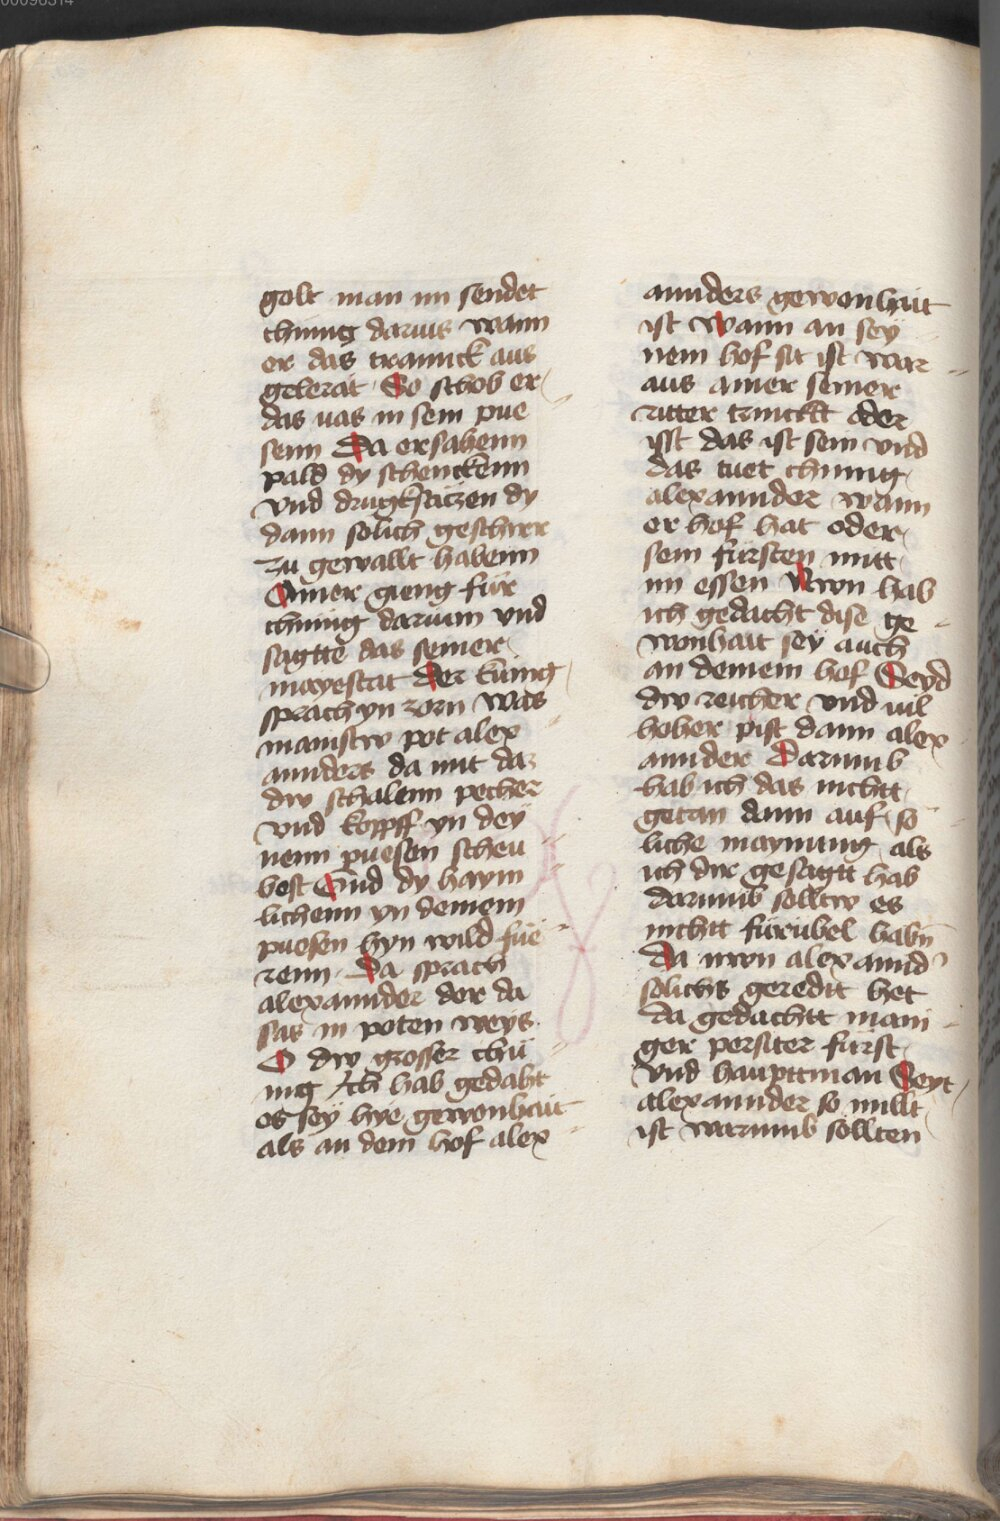 golt man im sendet
chunig darius wann
er das trannck aus
gelerat So schob er
das uas in sein pue
senn Da ersahenn
pald dy schenckenn
vnd drugksätzen dy
dann solich geschirr
zu gewallt habenn
Ainer gieng für
chunig darium vnd
sagtte das seiner
mayestat Der kunig
sprach yn zorn was
mainstw pot alex
annders da mit daz
dw schalenn pecher
vnd kopff yn dey
nenn puesen scheu
best Vnd dy haym
lichenn yn deinem
puesen hyn wild fue
renn Da sprach
alexannder der da
sas in poten weys
O dw grosser chu
nig Ich hab gedaht
es sey hye gewonhait
als an dem hof alex
annders gewonhait
ist Wann an sey
nem hof sit ist war
aus ainer seiner
ritter trinckt oder
isst das ist sein vnd
das tuet chunig
alexannder wann
er hof hat oder
sein fürsten mitt
im essen Nwn hab
ich gedacht dise ge
wonhait sey auch
an deinem hof Seyd
dw reicher vnd uil
hoher pist dann alex
annder Darumb
hab ich das nichtt
getan dann auf so
liche maynung als
ich dir gesagtt hab
darumb solltw es
nichtt fürübel habn
Da nwn alexannd
solichs geredit het
da gedachtt mani
ger persiter fürst
vnd haupttman Seyt
alexannder so millt
ist warumb sollten